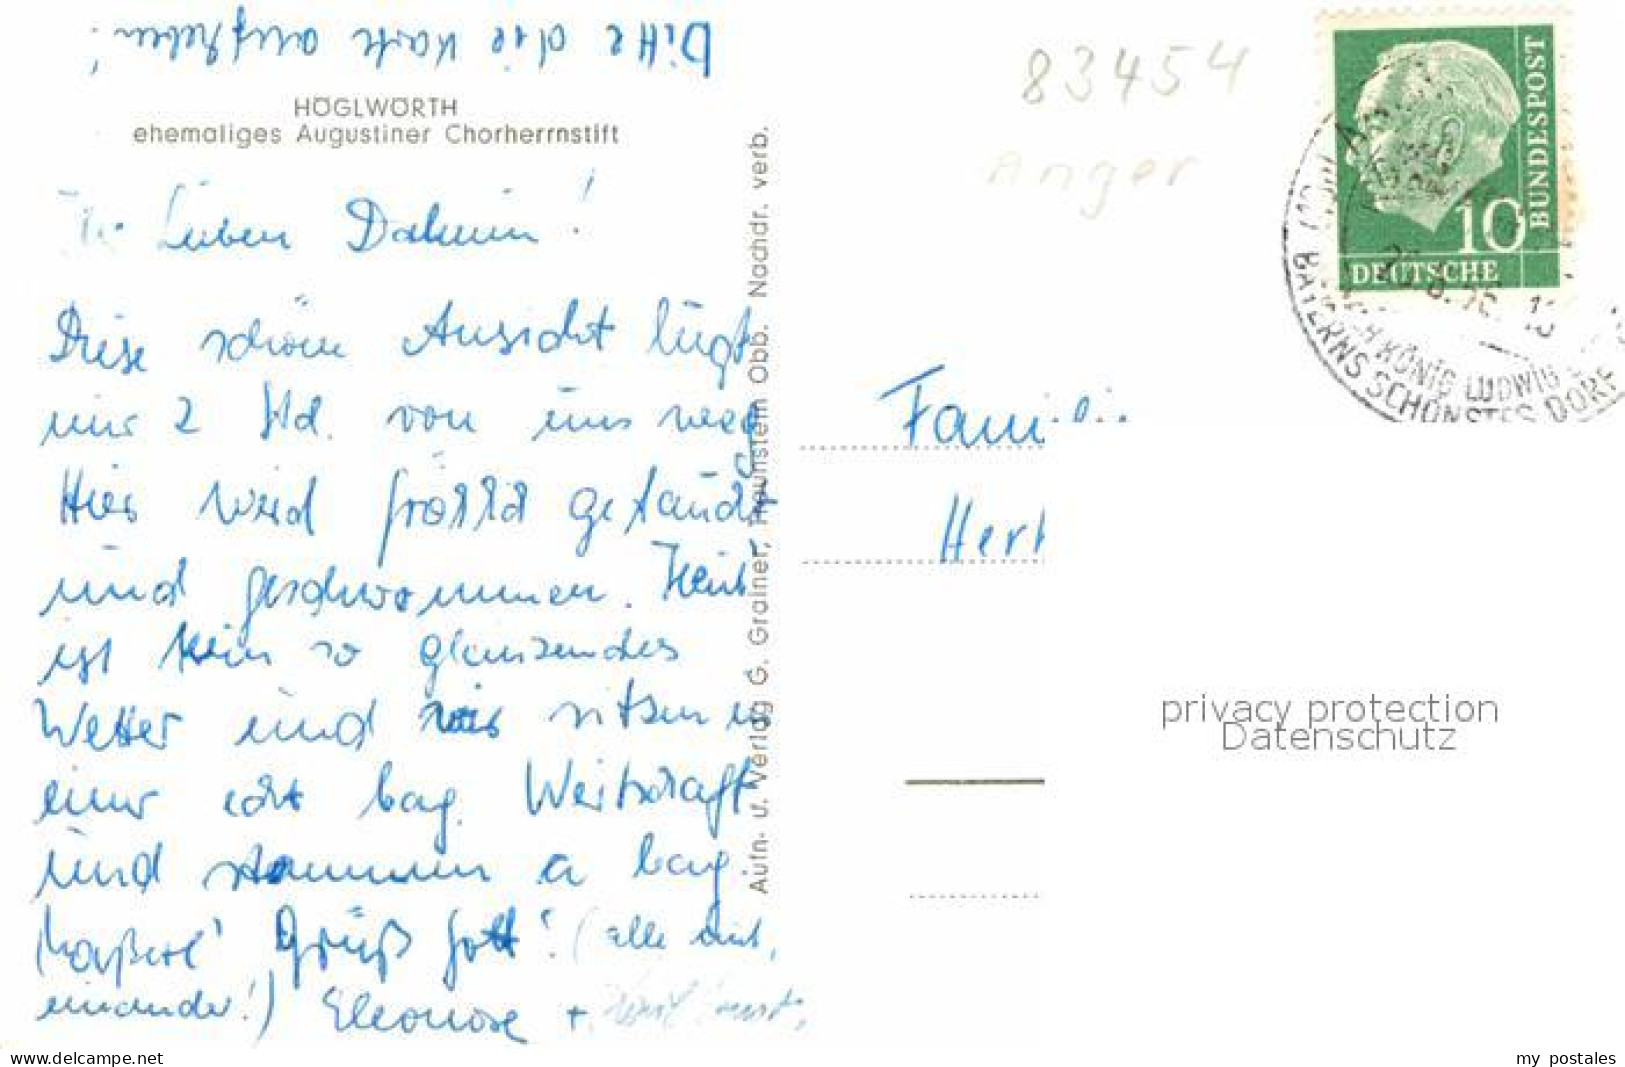 Bitte die Karte aufheben!
HÖGLWÖRTH
ehemaliges Augustiner Chorherrnstift
Lieben Daheim!
Diese schöne Ansicht liegt
nur 2 Std. von uns weg
Hier wird
und geschwommen. Heut
ist kein so glänzendes
Wetter und wir sitzen in
einer echt bay. Wirtschaft
und stemmen a bay.
Maßerl' Grüß Gott! (alle mit,
einander!) Eleonore +
Aufn- u. Verlag G. Grainer, Traunstein Obb. Nachdr. verb.
83454
Anger
BUNDESPOST
10
DEUTSCHE
KÖNIG LUDWIG
BAYERNS SCHÖNSTES DORF
Famili
Her
privacy protection
Datenschutz
www.delcampe.net
my postales